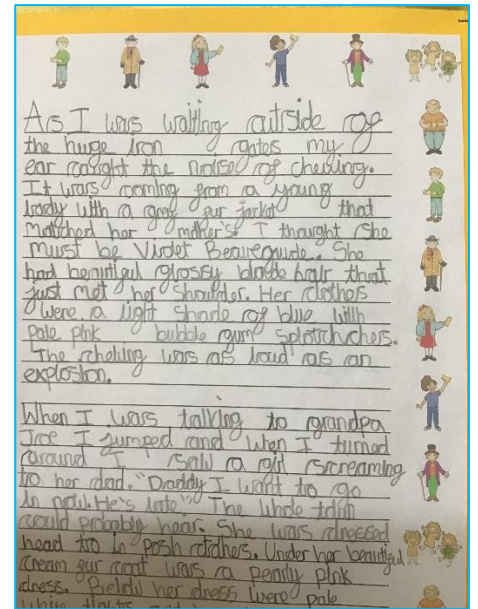 As I was waiting outside of
the huge iron gates my
ear caught the noise of chewing.
It was coming from a young
lady with a gray fur jacket that
matched her mother's. I thought she
must be Violet Beaureguade. She
had beautiful glossy blonde hair that
just met her shoulder. Her clothes
were a light shade of blue with
pale pink bubble gum splotchchers.
The chewing was as loud as an
explosion.
When I was talking to grandpa
Joe I jumped and when I turned
around I saw a girl screaming
to her dad. "Daddy I want to go
in now. He's late" The whole town
could probably hear. She was dressed
head to in posh clothes. Under her beautiful
cream fur coat was a pearly pink
dress. Below her dress were pale
white tights